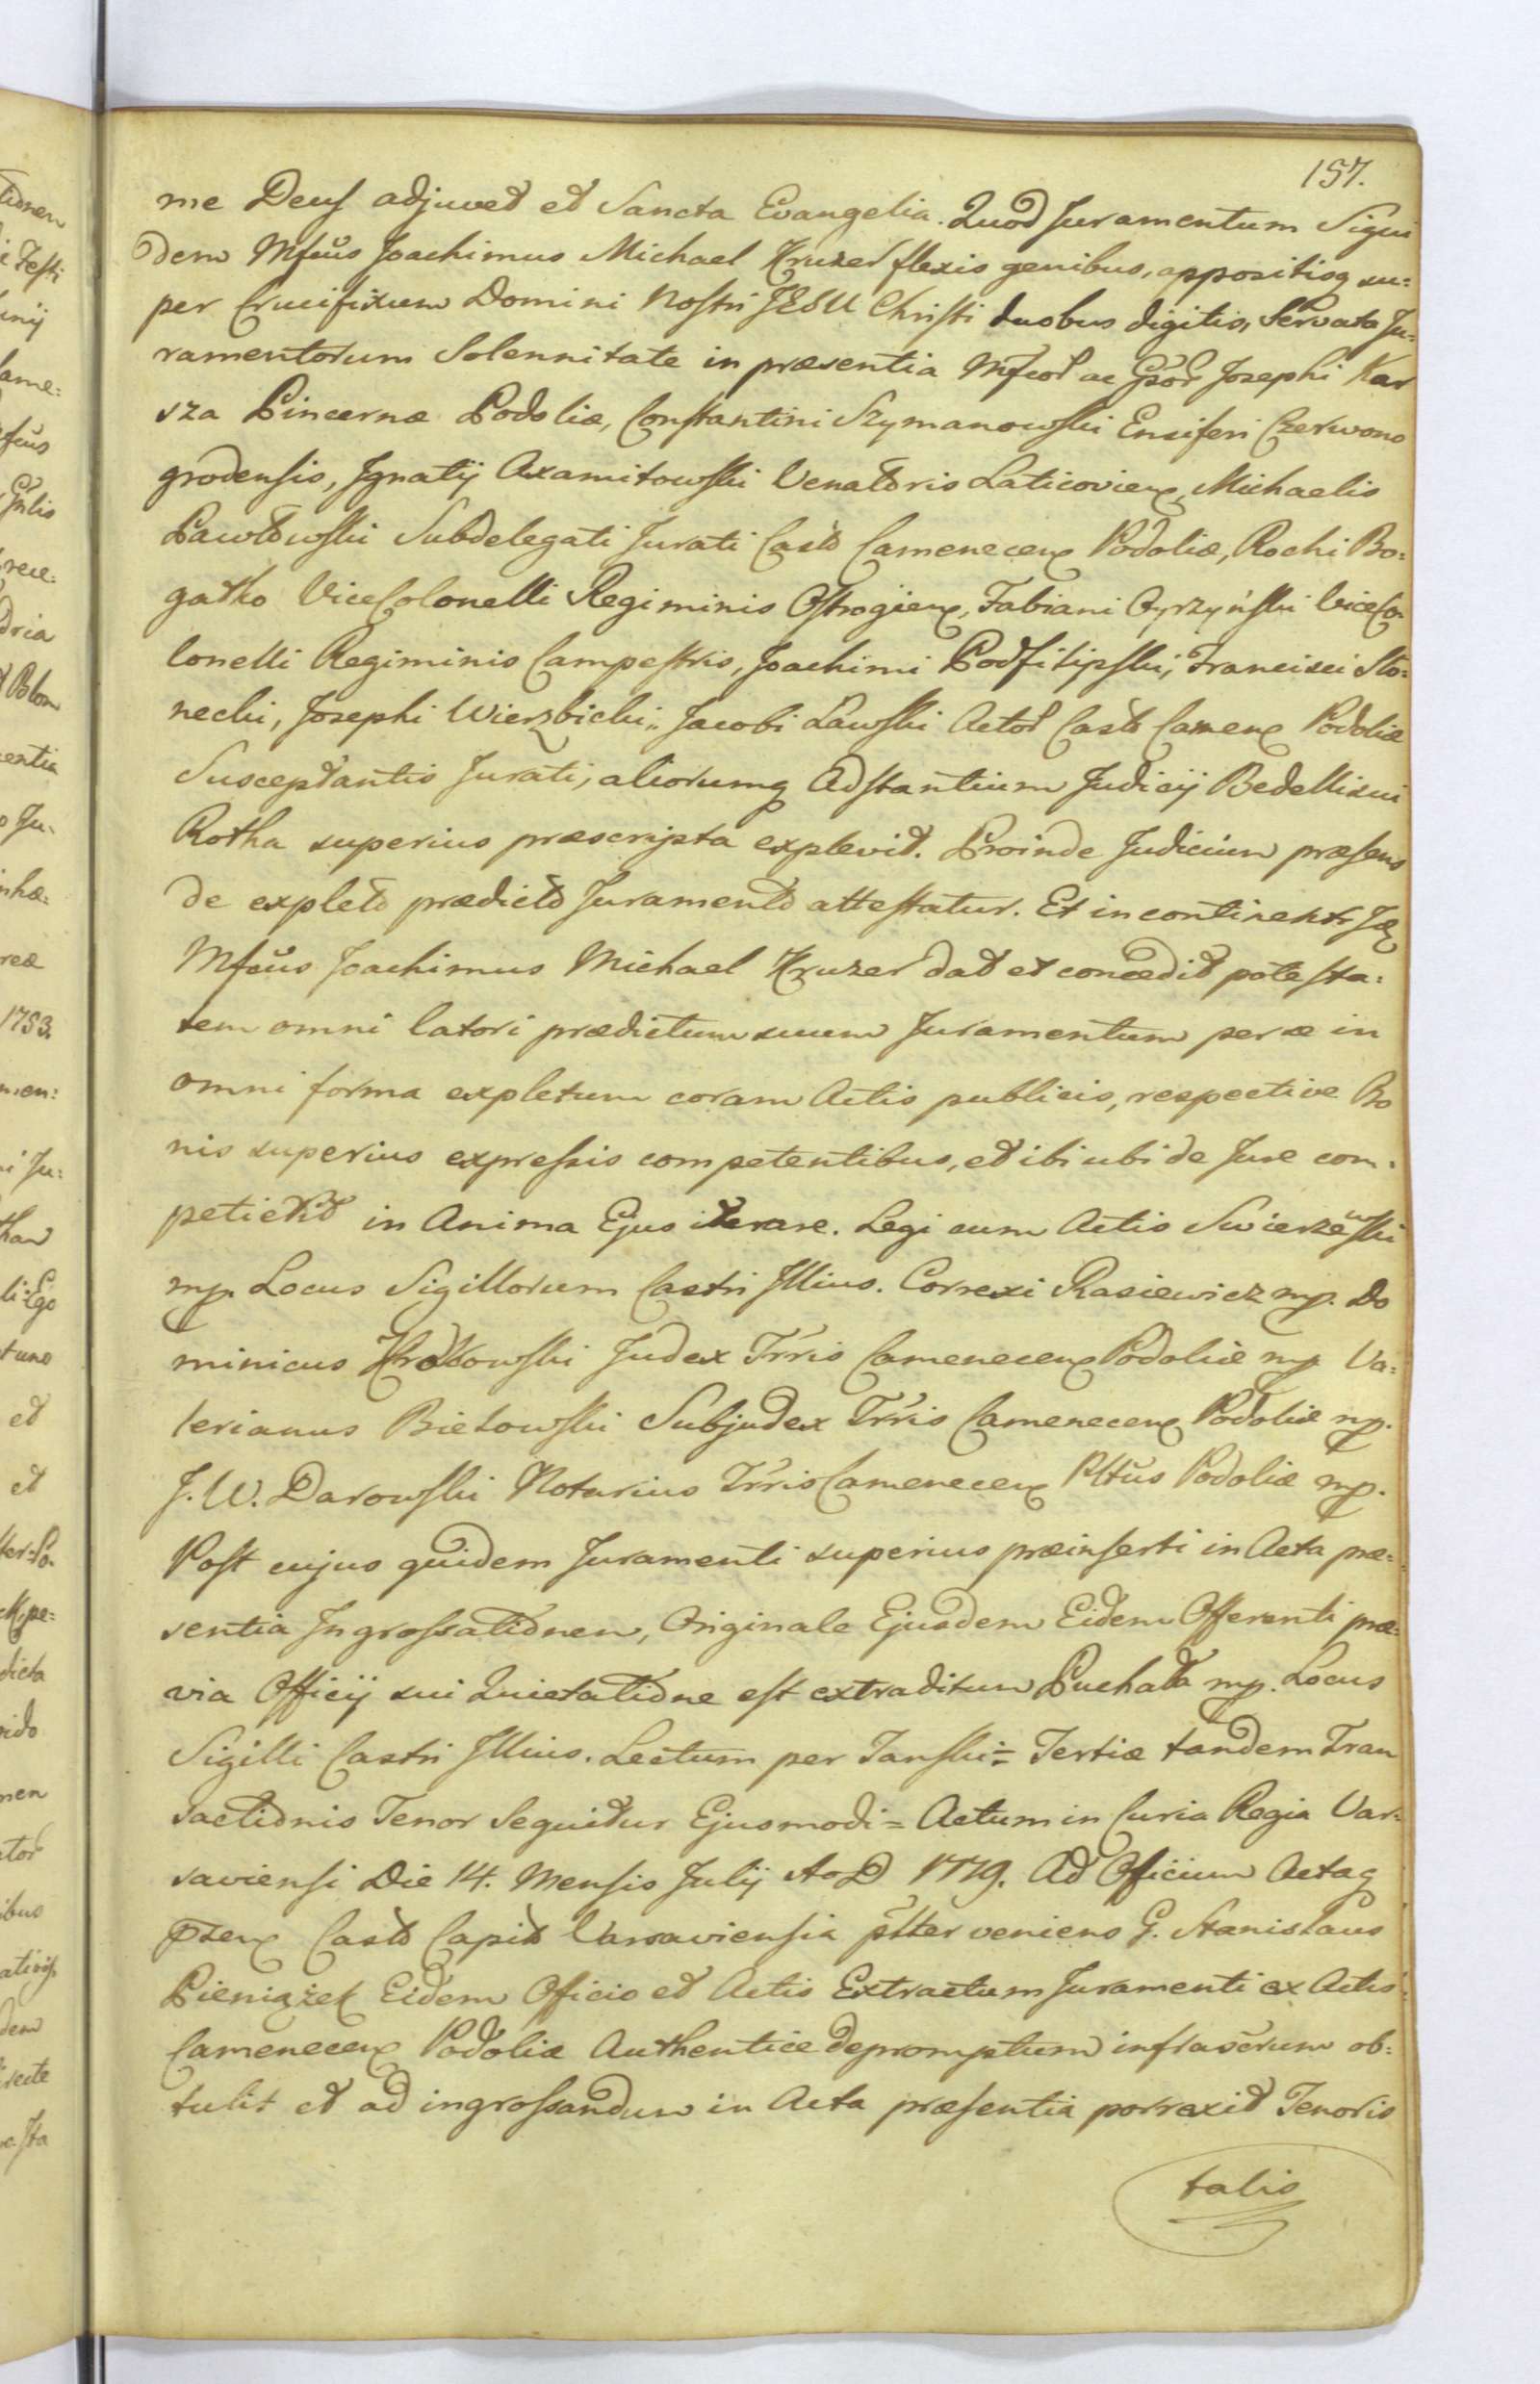 157.
me Deus adjuvet et Sancta Evangelia. Quod Juramentum Siqui
dem Mfcus Joachimus Michael Kruzer flexis genibus, appositisq su=
per Crucifixum Domini Nostri JESU Christi duobus digitis, Servata Ju=
ramentorum Solennitate in præsentia Mfcor ac Gsor Josephi Kar
sza Pincernæ Podoliæ, Constantini Szymanowski Ensiferi Czerwono
grodensis, Ignatij Axamitowski Venatoris Laticoviens, Michaelis
Pawłowski Subdelegati Jurati Casto Camenecens Podoliæ, Rochi Bo=
gatko ViceColonelli Regiminis Ostrogiens, Fabiani Oyrzyński ViceCo=
lonelli Regiminis Campestris, Joachimi Podfilipski, Francisci Sło=
necki, Josephi Wierzbicki, Jacobi Ławski Actor Casto Camens Podoliæ
Susceptantis Jurati, aliorumq Adstantium Judicij Bedellisui
Rotha superius præscripta explevit. Proinde Judicium præsens
de expleto prædicto Juramento attestatur. Et in continenti
Mfcus Joachimus Michael Kruzer dat et concedit potesta=
tem omni latori prædictum suum Juramentum per se in
omni forma expletum coram Actis publicis, respective Bo
nis superius expressis competentibus, et ibi ubi de Jure com=
petierit in Anima Ejus iterare. Legi cum Actis Swierzeński
mp. Locus Sigillorum Castri Illius. Correxi Rasiewicz mp. Do
minicus Judex Trris Camenecens Podoliæ mp Va=
lerianus Bielowski Subjudex Trris Camenecens Podoliæ mp.
J. W. Darowski Notarius Trris Camenecens Pltus Podoliæ mp.
Post cujus quidem Juramenti superius præinserti in Acta præ=
sentia Ingrossationem, Originale Ejusdem Eidem Offerenti præ=
via Officij sui Quietatione est extraditum Puchała mp. Locus
Sigilli Castri Illius. Lectum per Janski = Tertiæ tandem Tran
sactionis Tenor Sequitur Ejusmodi = Actum in Curia Regia Var=
saviensi Die 14. Mensis Julij AoD 1779. Ad Officium Actaq
pzens Casto Capit Varsaviensia pltter veniens G. Stanislaus
Pieniążek Eidem Officio et Actis Extractum Juramenti ex Actis
Camenecens Podoliæ Authentice depromptum infrascrum ob=
tulit et ad ingrossandum in Acta præsentia porrexit Tenoris
talis